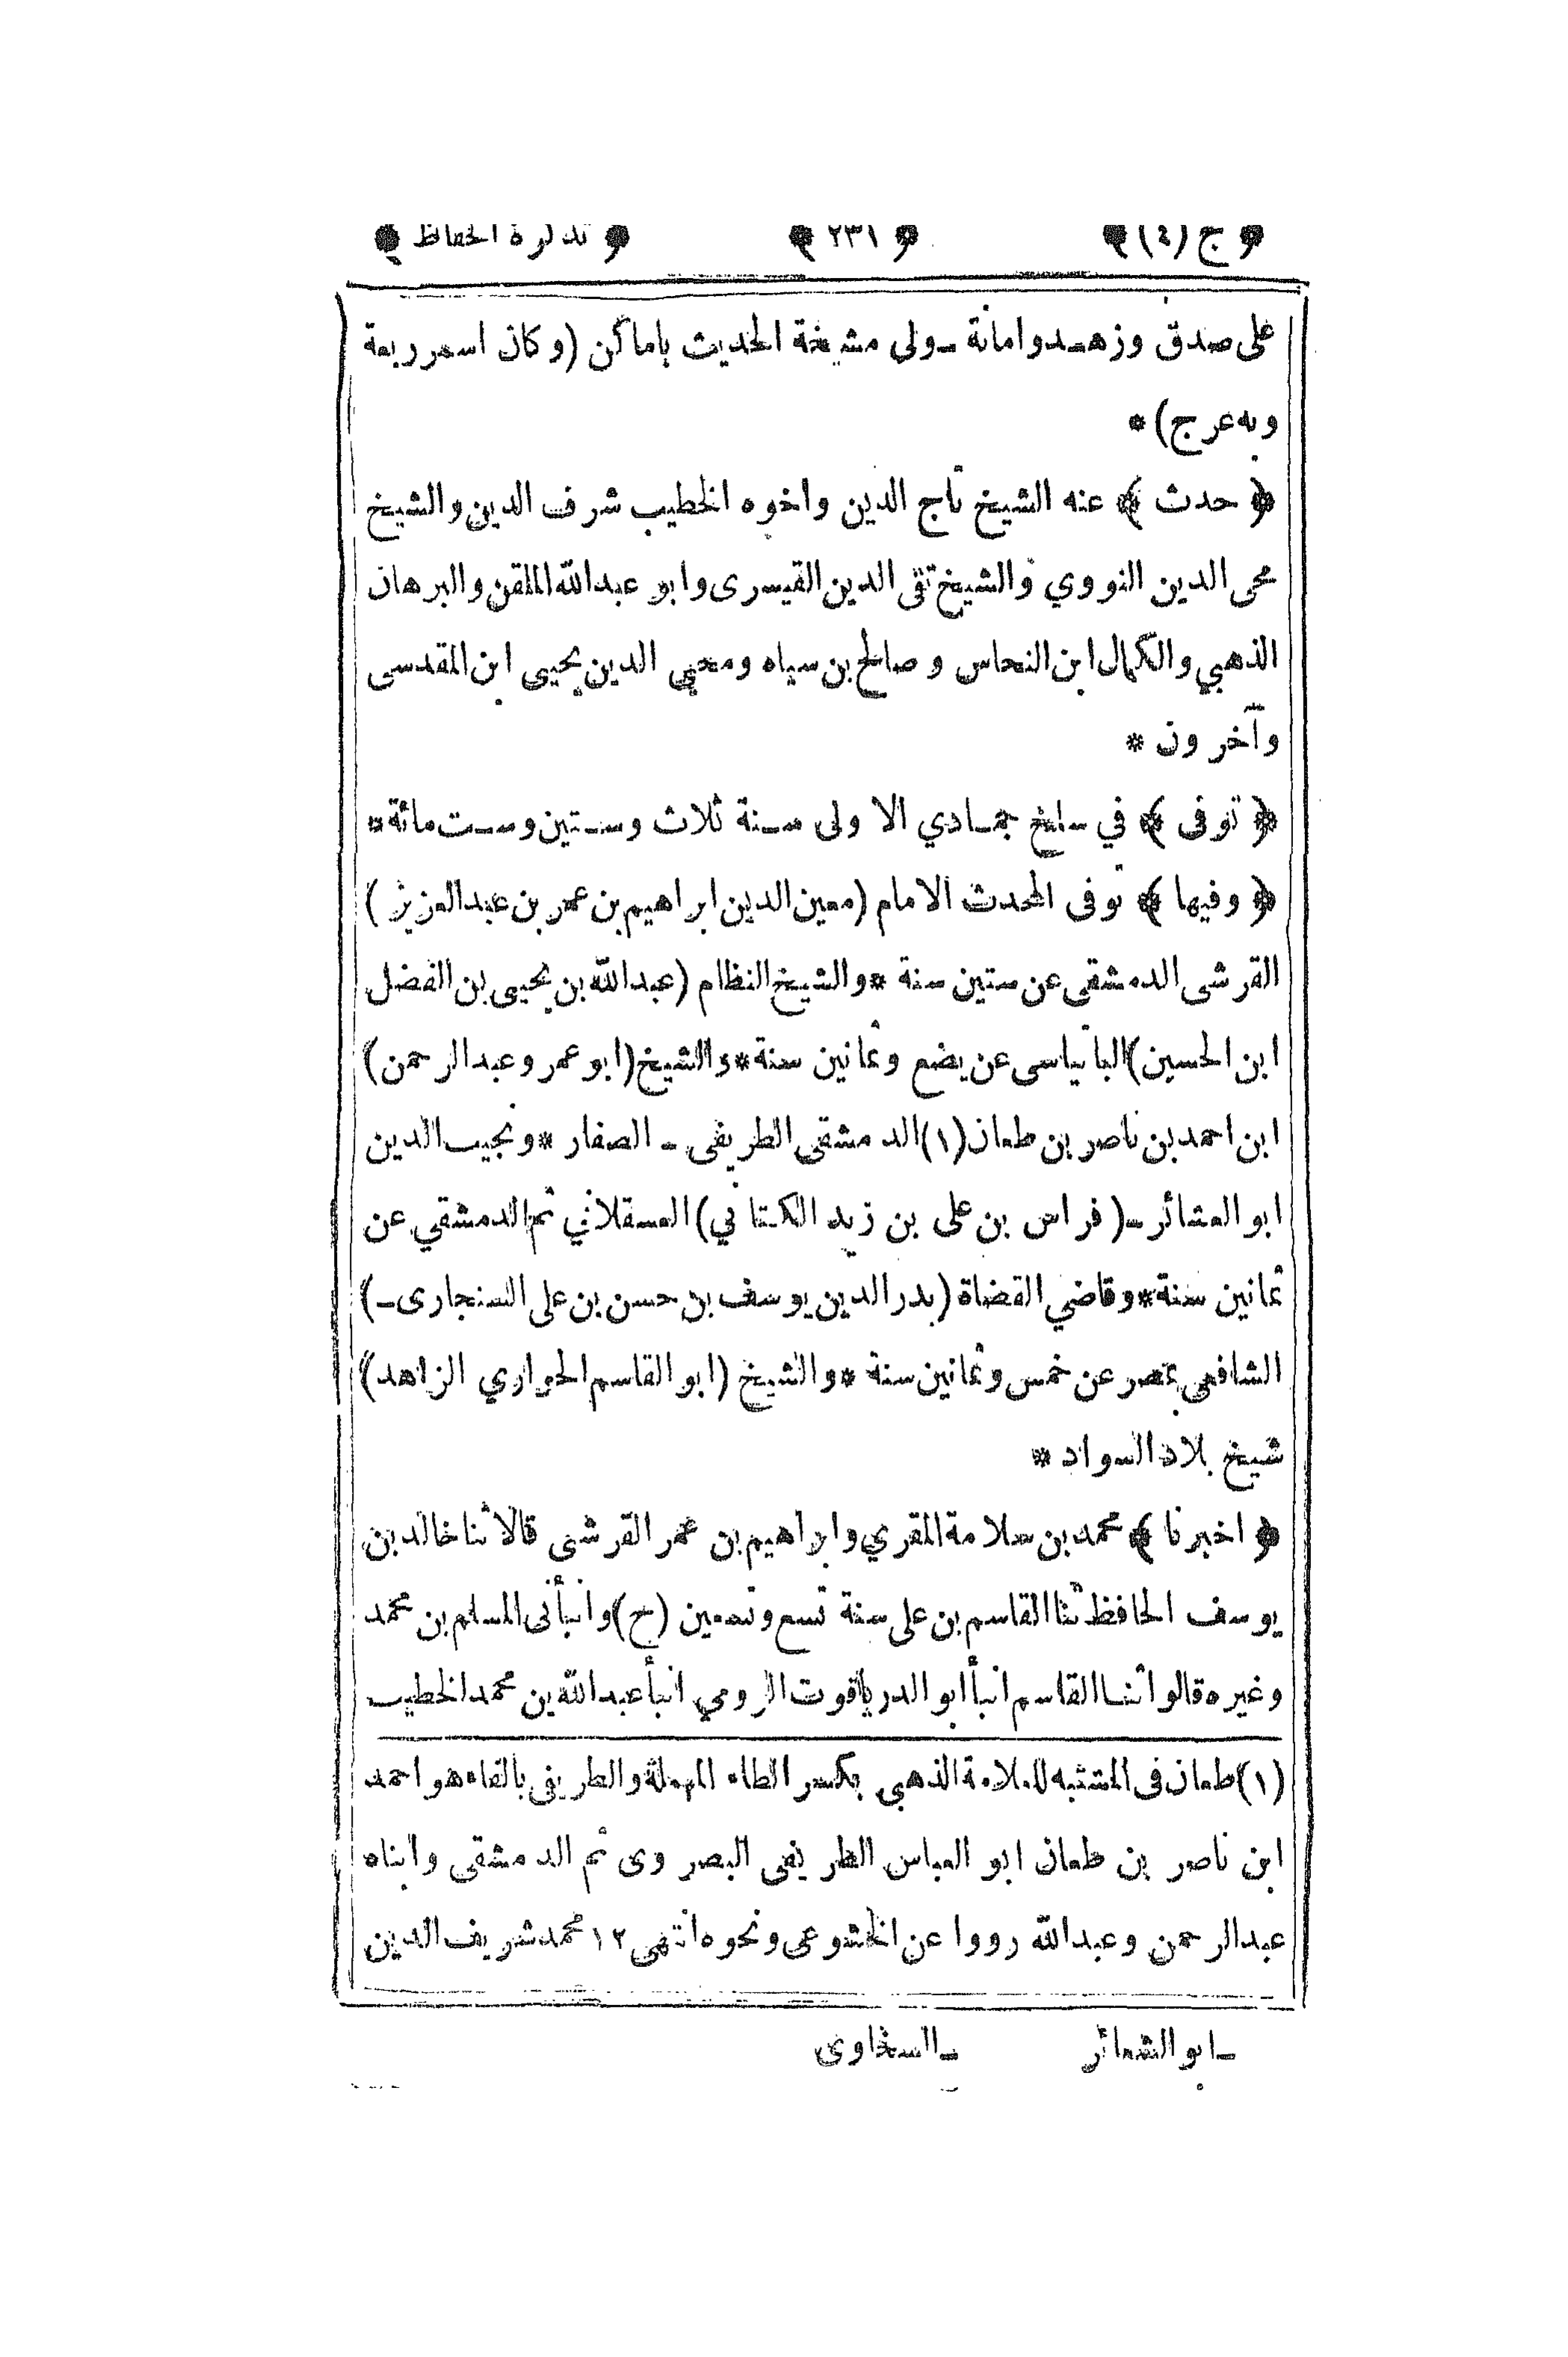 ﴿ ج (٤) ﴾ ﴿ ٢٣١ ﴾ ﴿ تذكرة الحفاظ ﴾
على صدق وزهد وامانة ـ ولى مشيخة الحديث باماكن (وكان اسمر ربعة
وبه عرج) *
﴿ حدث ﴾ عنه الشيخ تاج الدين واخوه الخطيب شرف الدين والشيخ
محى الدين النووي والشيخ تقى الدين القيسرى وابو عبدالله الملقن والبرهان
الذهبي والكمال ابن النحاس و صالح بن سياه ومحيي الدين يحيى ابن المقدسى
وآخرون *
﴿ توفى ﴾ في سلخ جمادي الاولى سنة ثلاث وستين وست مائة *
﴿ وفيها ﴾ توفى المحدث الامام (معين الدين ابراهيم بن عمر بن عبدالعزيز)
القرشى الدمشقى عن ستين سنة * والشيخ النظام (عبدالله بن يحيى بن الفضل
ابن الحسين) البانياسى عن بضع وثمانين سنة * والشيخ (ابو عمر وعبدالرحمن)
ابن احمد بن ناصر بن طعان (١) الدمشقى الطريفى ـ الصفار * ونجيب الدين
ابو العشائر ـ (فراس بن على بن زيد الكتاني) العسقلاني ثم الدمشقي عن
ثمانين سنة * وقاضي القضاة (بدر الدين يوسف بن حسن بن على السنجارى ـ)
الشافعى بمصر عن خمس وثمانين سنة * والشيخ (ابو القاسم الحواري الزاهد)
شيخ بلاد السواد *
﴿ اخبرنا ﴾ محمد بن سلامة المقري وابراهيم بن عمر القرشى قالا ثنا خالد بن
يوسف الحافظ ثنا القاسم بن على سنة تسع وتسعين (ح) وانبأنى المسلم بن محمد
وغيره قالوا ثنا القاسم انبأ ابو الدر ياقوت الرومي انبأ عبدالله بن محمد الخطيب
(١) طعان فى المشتبه للعلامة الذهبي بكسر الطاء المهملة والطريفى بالفاء هو احمد
ابن ناصر بن طعان ابو العباس الطريفى البصروى ثم الدمشقى وابناه
عبدالرحمن وعبدالله رووا عن الخشوعى ونحوه انتهى ١٢ محمد شريف الدين
ـ ابو الشعائر ـ السخاوى